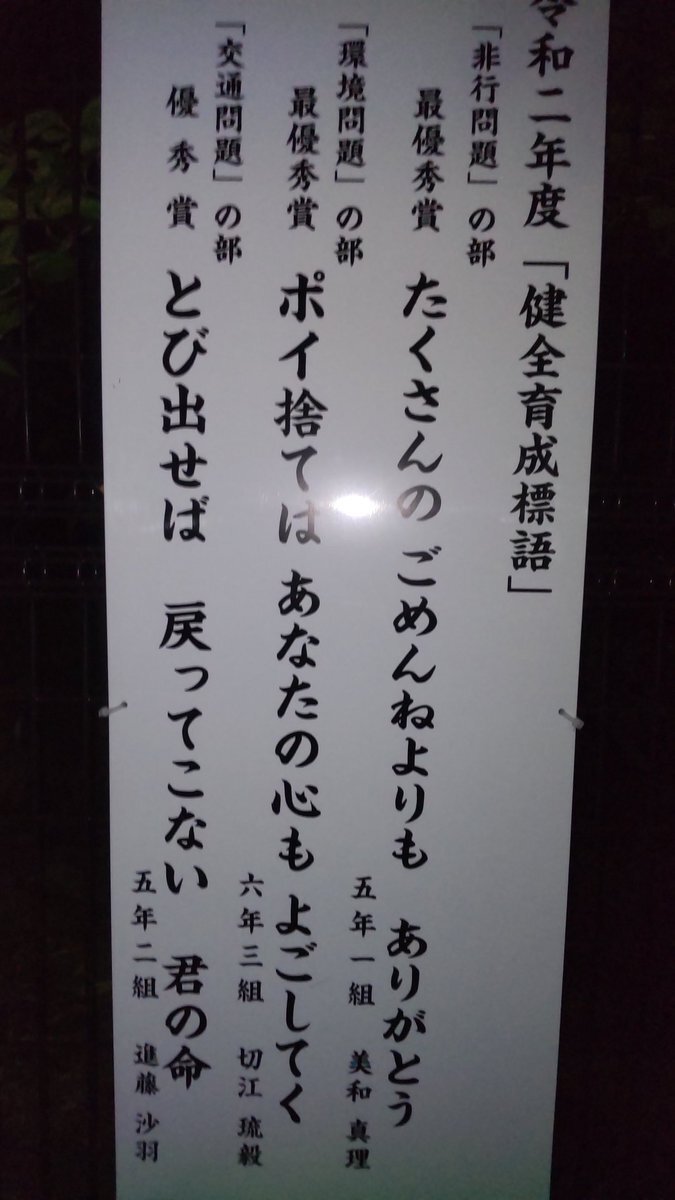 令和二年度「健全育成標語」
「非行問題」の部
最優秀賞 たくさんの ごめんねよりも ありがとう
五年一組 美和 真理
「環境問題」の部
最優秀賞 ポイ捨ては あなたの心も よごしてく
六年三組 切江 琉毅
「交通問題」の部
優秀賞 とび出せば 戻ってこない 君の命
五年二組 進藤 沙羽